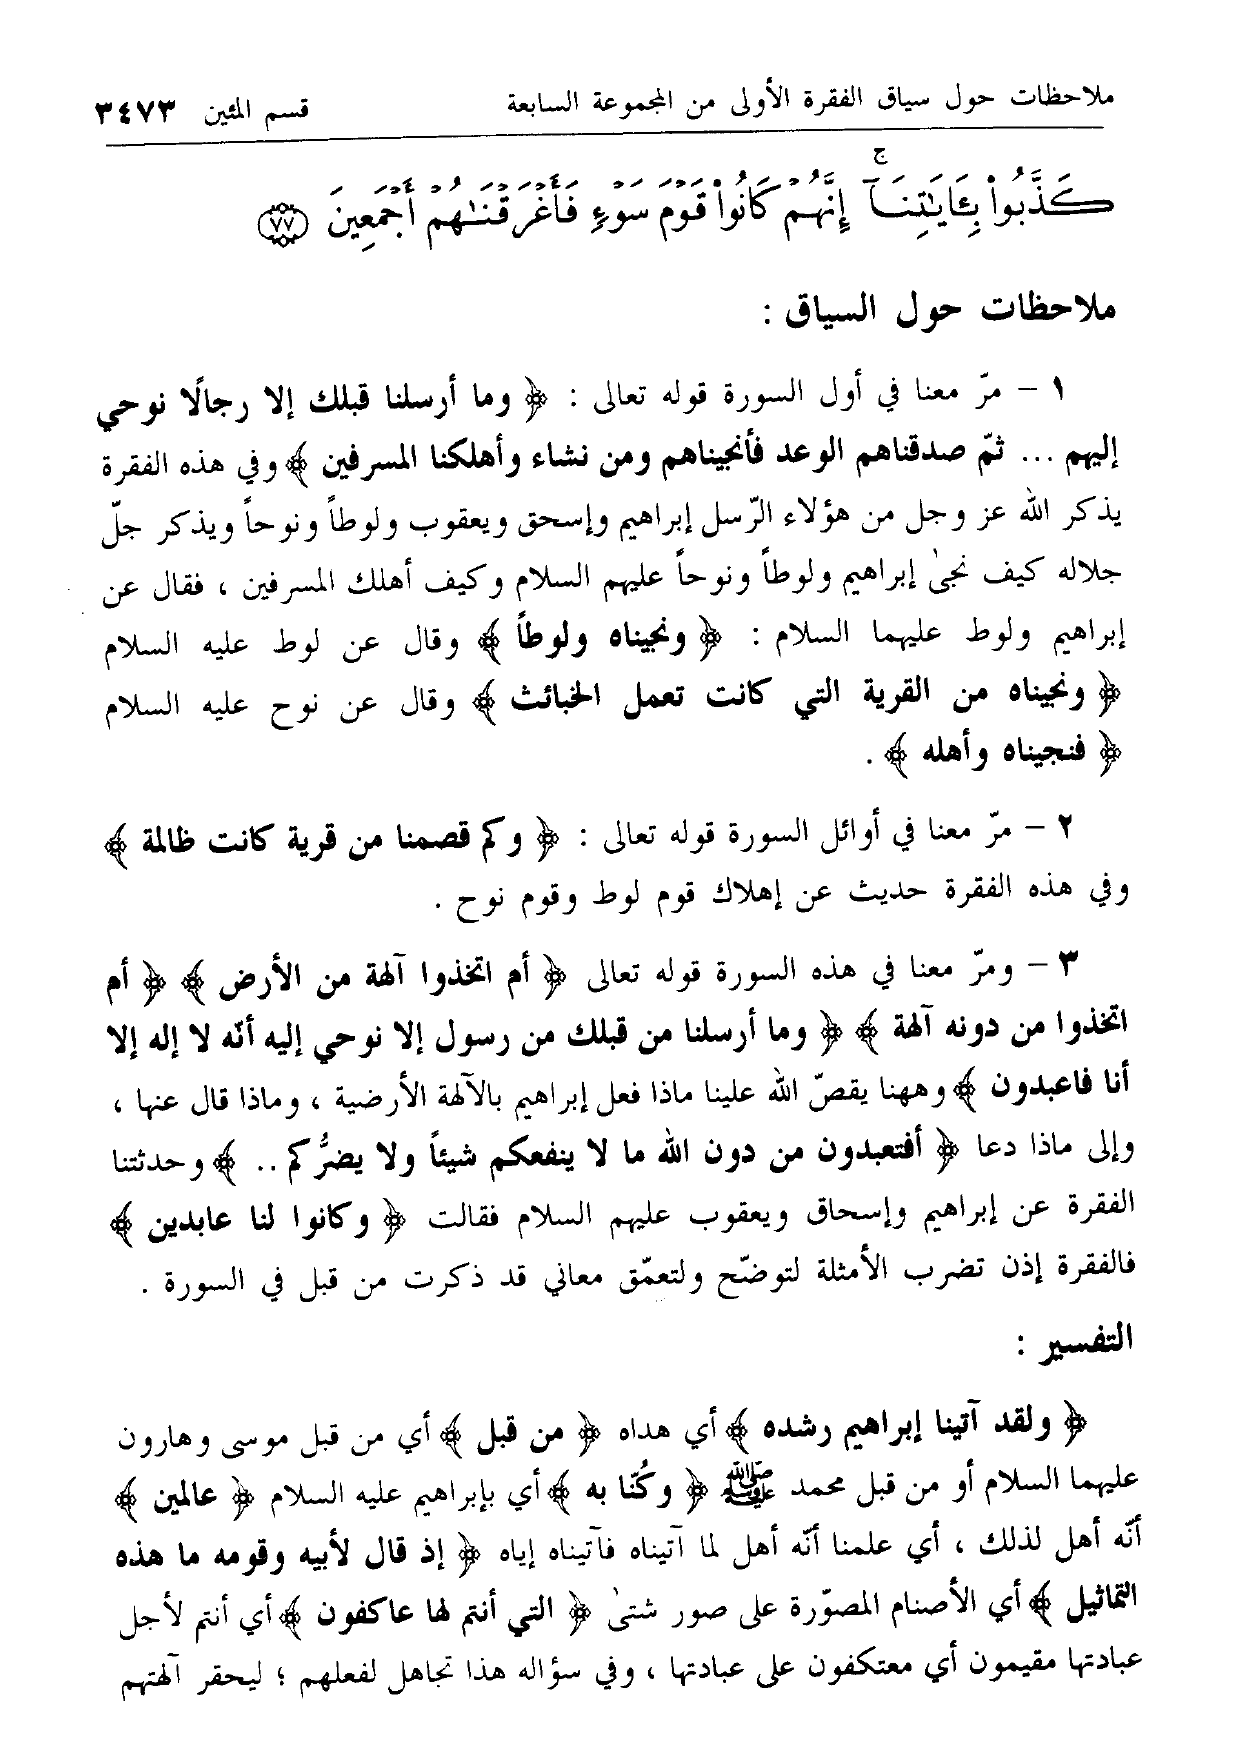 ملاحظات حول سياق الفقرة الأولى من المجموعة السابعة قسم المئين ٣٤٧٣
كَذَّبُوا۟ بِـَٔايَـٰتِنَآ ۚ إِنَّهُمْ كَانُوا۟ قَوْمَ سَوْءٍ فَأَغْرَقْنَـٰهُمْ أَجْمَعِينَ ٧٧
ملاحظات حول السياق :
١ - مرّ معنا في أول السورة قوله تعالى : ﴿ وما أرسلنا قبلك إلا رجالًا نوحي
إليهم ... ثمّ صدقناهم الوعد فأنجيناهم ومن نشاء وأهلكنا المسرفين ﴾ وفي هذه الفقرة
يذكر الله عز وجل من هؤلاء الرّسل إبراهيم وإسحق ويعقوب ولوطاً ونوحاً ويذكر جلّ
جلاله كيف نجىٰ إبراهيم ولوطاً ونوحاً عليهم السلام وكيف أهلك المسرفين ، فقال عن
إبراهيم ولوط عليهما السلام : ﴿ ونجيناه ولوطاً ﴾ وقال عن لوط عليه السلام
﴿ ونجيناه من القرية التي كانت تعمل الخبائث ﴾ وقال عن نوح عليه السلام
﴿ فنجيناه وأهله ﴾ .
٢ - مرّ معنا في أوائل السورة قوله تعالى : ﴿ وكم قصمنا من قرية كانت ظالمة ﴾
وفي هذه الفقرة حديث عن إهلاك قوم لوط وقوم نوح .
٣ - ومرّ معنا في هذه السورة قوله تعالى ﴿ أم اتخذوا آلهة من الأرض ﴾ ﴿ أم
اتخذوا من دونه آلهة ﴾ ﴿ وما أرسلنا من قبلك من رسول إلا نوحي إليه أنّه لا إله إلا
أنا فاعبدون ﴾ وههنا يقصّ الله علينا ماذا فعل إبراهيم بالآلهة الأرضية ، وماذا قال عنها ،
وإلى ماذا دعا ﴿ أفتعبدون من دون الله ما لا ينفعكم شيئاً ولا يضرُّكم .. ﴾ وحدثتنا
الفقرة عن إبراهيم وإسحاق ويعقوب عليهم السلام فقالت ﴿ وكانوا لنا عابدين ﴾
فالفقرة إذن تضرب الأمثلة لتوضّح ولتعمّق معاني قد ذكرت من قبل في السورة .
التفسير :
﴿ ولقد آتينا إبراهيم رشده ﴾ أي هداه ﴿ من قبل ﴾ أي من قبل موسى وهارون
عليهما السلام أو من قبل محمد ﷺ ﴿ وكُنّا به ﴾ أي بإبراهيم عليه السلام ﴿ عالمين ﴾
أنّه أهل لذلك ، أي علمنا أنّه أهل لما آتيناه فآتيناه إياه ﴿ إذ قال لأبيه وقومه ما هذه
التماثيل ﴾ أي الأصنام المصوّرة على صور شتىٰ ﴿ التي أنتم لها عاكفون ﴾ أي أنتم لأجل
عبادتها مقيمون أي معتكفون على عبادتها ، وفي سؤاله هذا تجاهل لفعلهم ؛ ليحقر آلهتهم